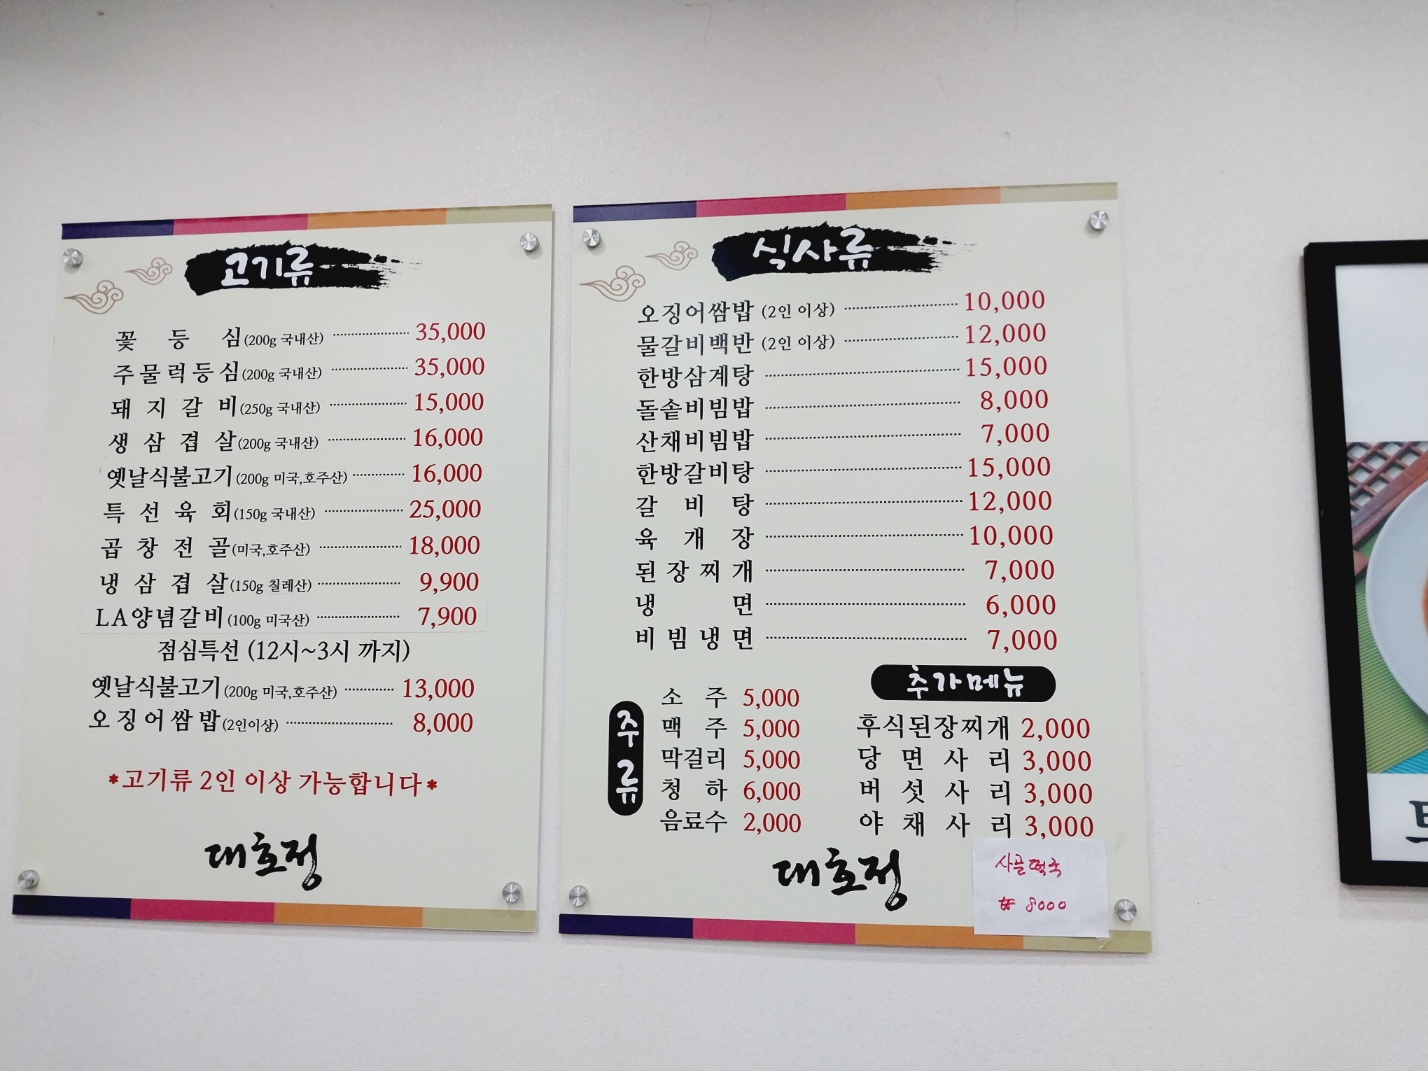 고기류
꽃등심(200g 국내산) 35,000
주물럭등심(200g 국내산) 35,000
돼지갈비(250g 국내산) 15,000
생삼겹살(200g 국내산) 16,000
옛날식불고기(200g 미국,호주산) 16,000
특선육회(150g 국내산) 25,000
곱창전골(미국,호주산) 18,000
냉삼겹살(150g 칠레산) 9,900
LA양념갈비(100g 미국산) 7,900
점심특선 (12시~3시 까지)
옛날식불고기(200g 미국,호주산) 13,000
오징어쌈밥(2인이상) 8,000
*고기류 2인 이상 가능합니다*
대호정
식사류
오징어쌈밥 (2인 이상) 10,000
물갈비백반 (2인 이상) 12,000
한방삼계탕 15,000
돌솥비빔밥 8,000
산채비빔밥 7,000
한방갈비탕 15,000
갈비탕 12,000
육개장 10,000
된장찌개 7,000
냉면 6,000
비빔냉면 7,000
주류
소주 5,000
맥주 5,000
막걸리 5,000
청하 6,000
음료수 2,000
추가메뉴
후식된장찌개 2,000
당면사리 3,000
버섯사리 3,000
야채사리 3,000
대호정
사골떡국
₩ 8000